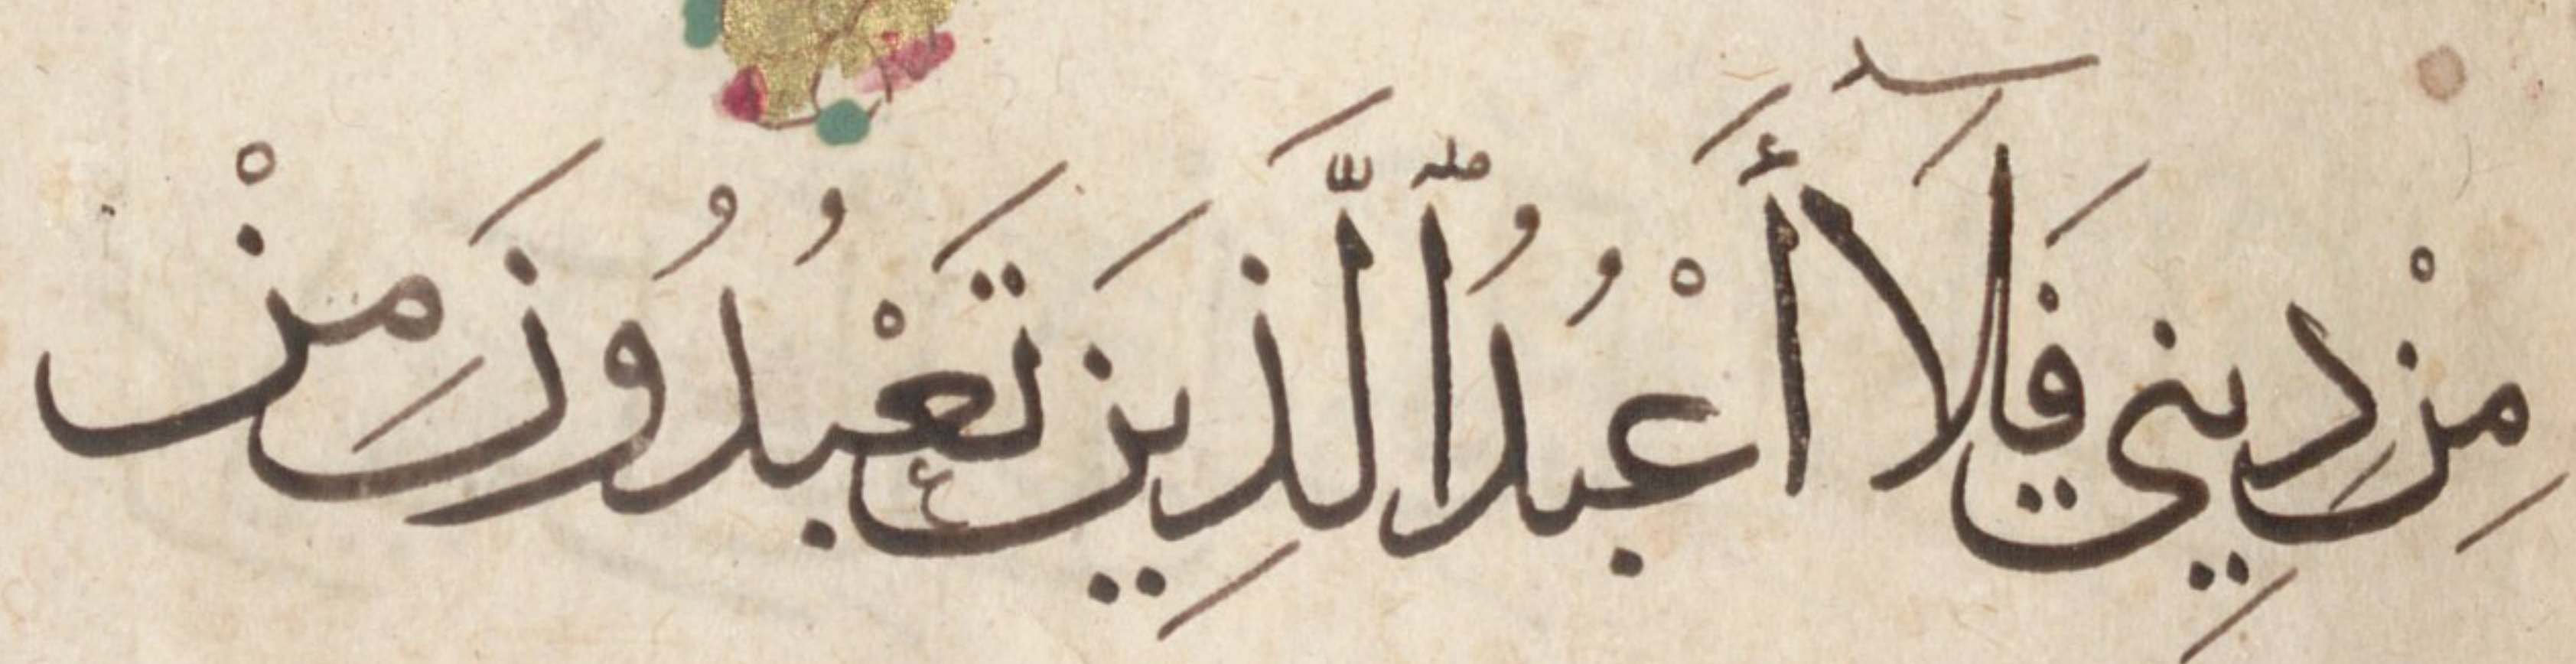 مِنْ دِينِي فَلَآ أَعْبُدُ ٱلَّذِينَ تَعْبُدُونَ مِنْ